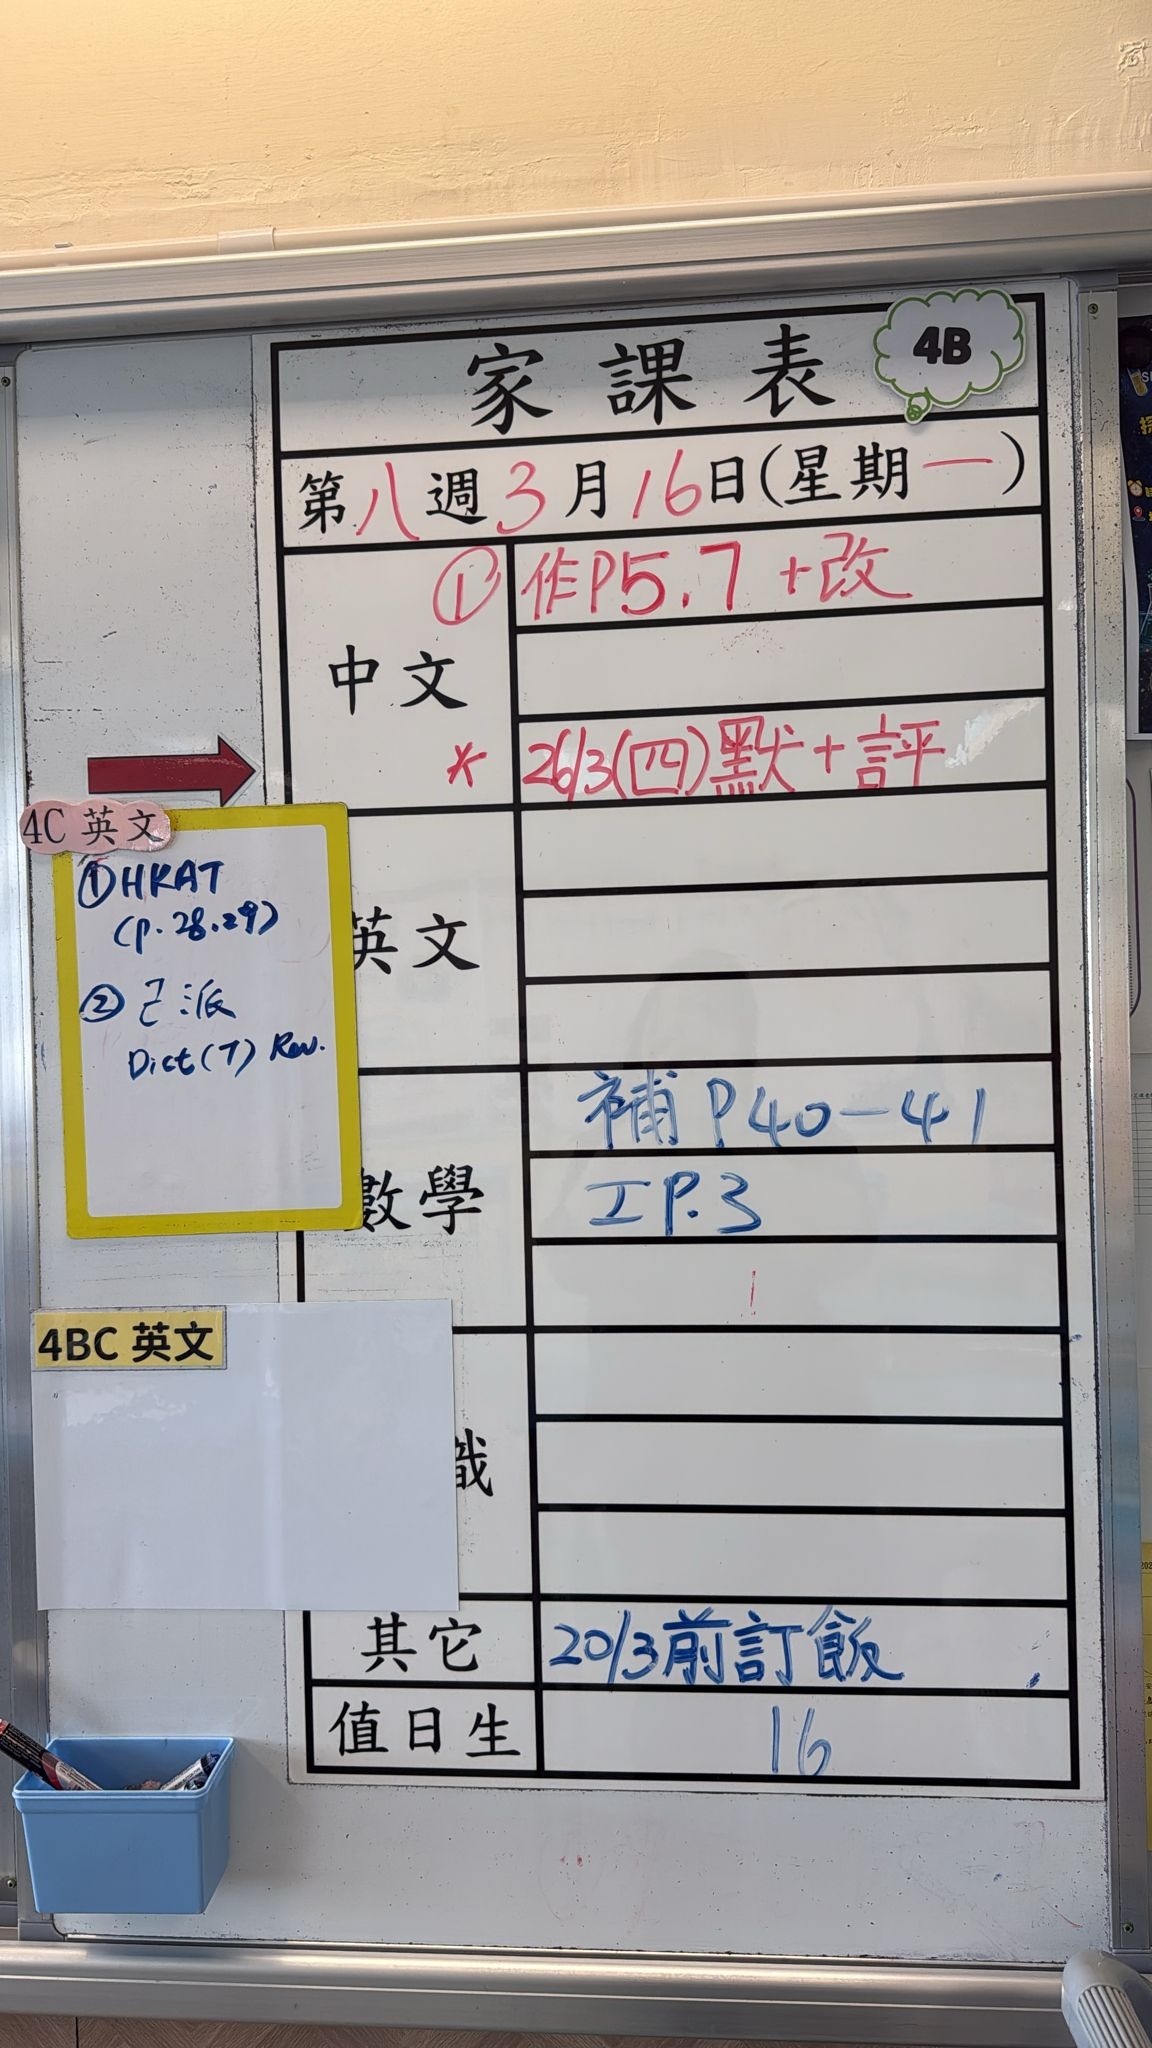 家課表
4B
第八週3月16日(星期一)
中文
① 作P5.7 +改
* 26/3(四)默+評
4C 英文
①HKAT
(p.28.29)
② 已派
Dict(7) Rev.
英文
數學
補P40-41
工P.3
4BC 英文
識
其它
20/3前訂飯
值日生
16